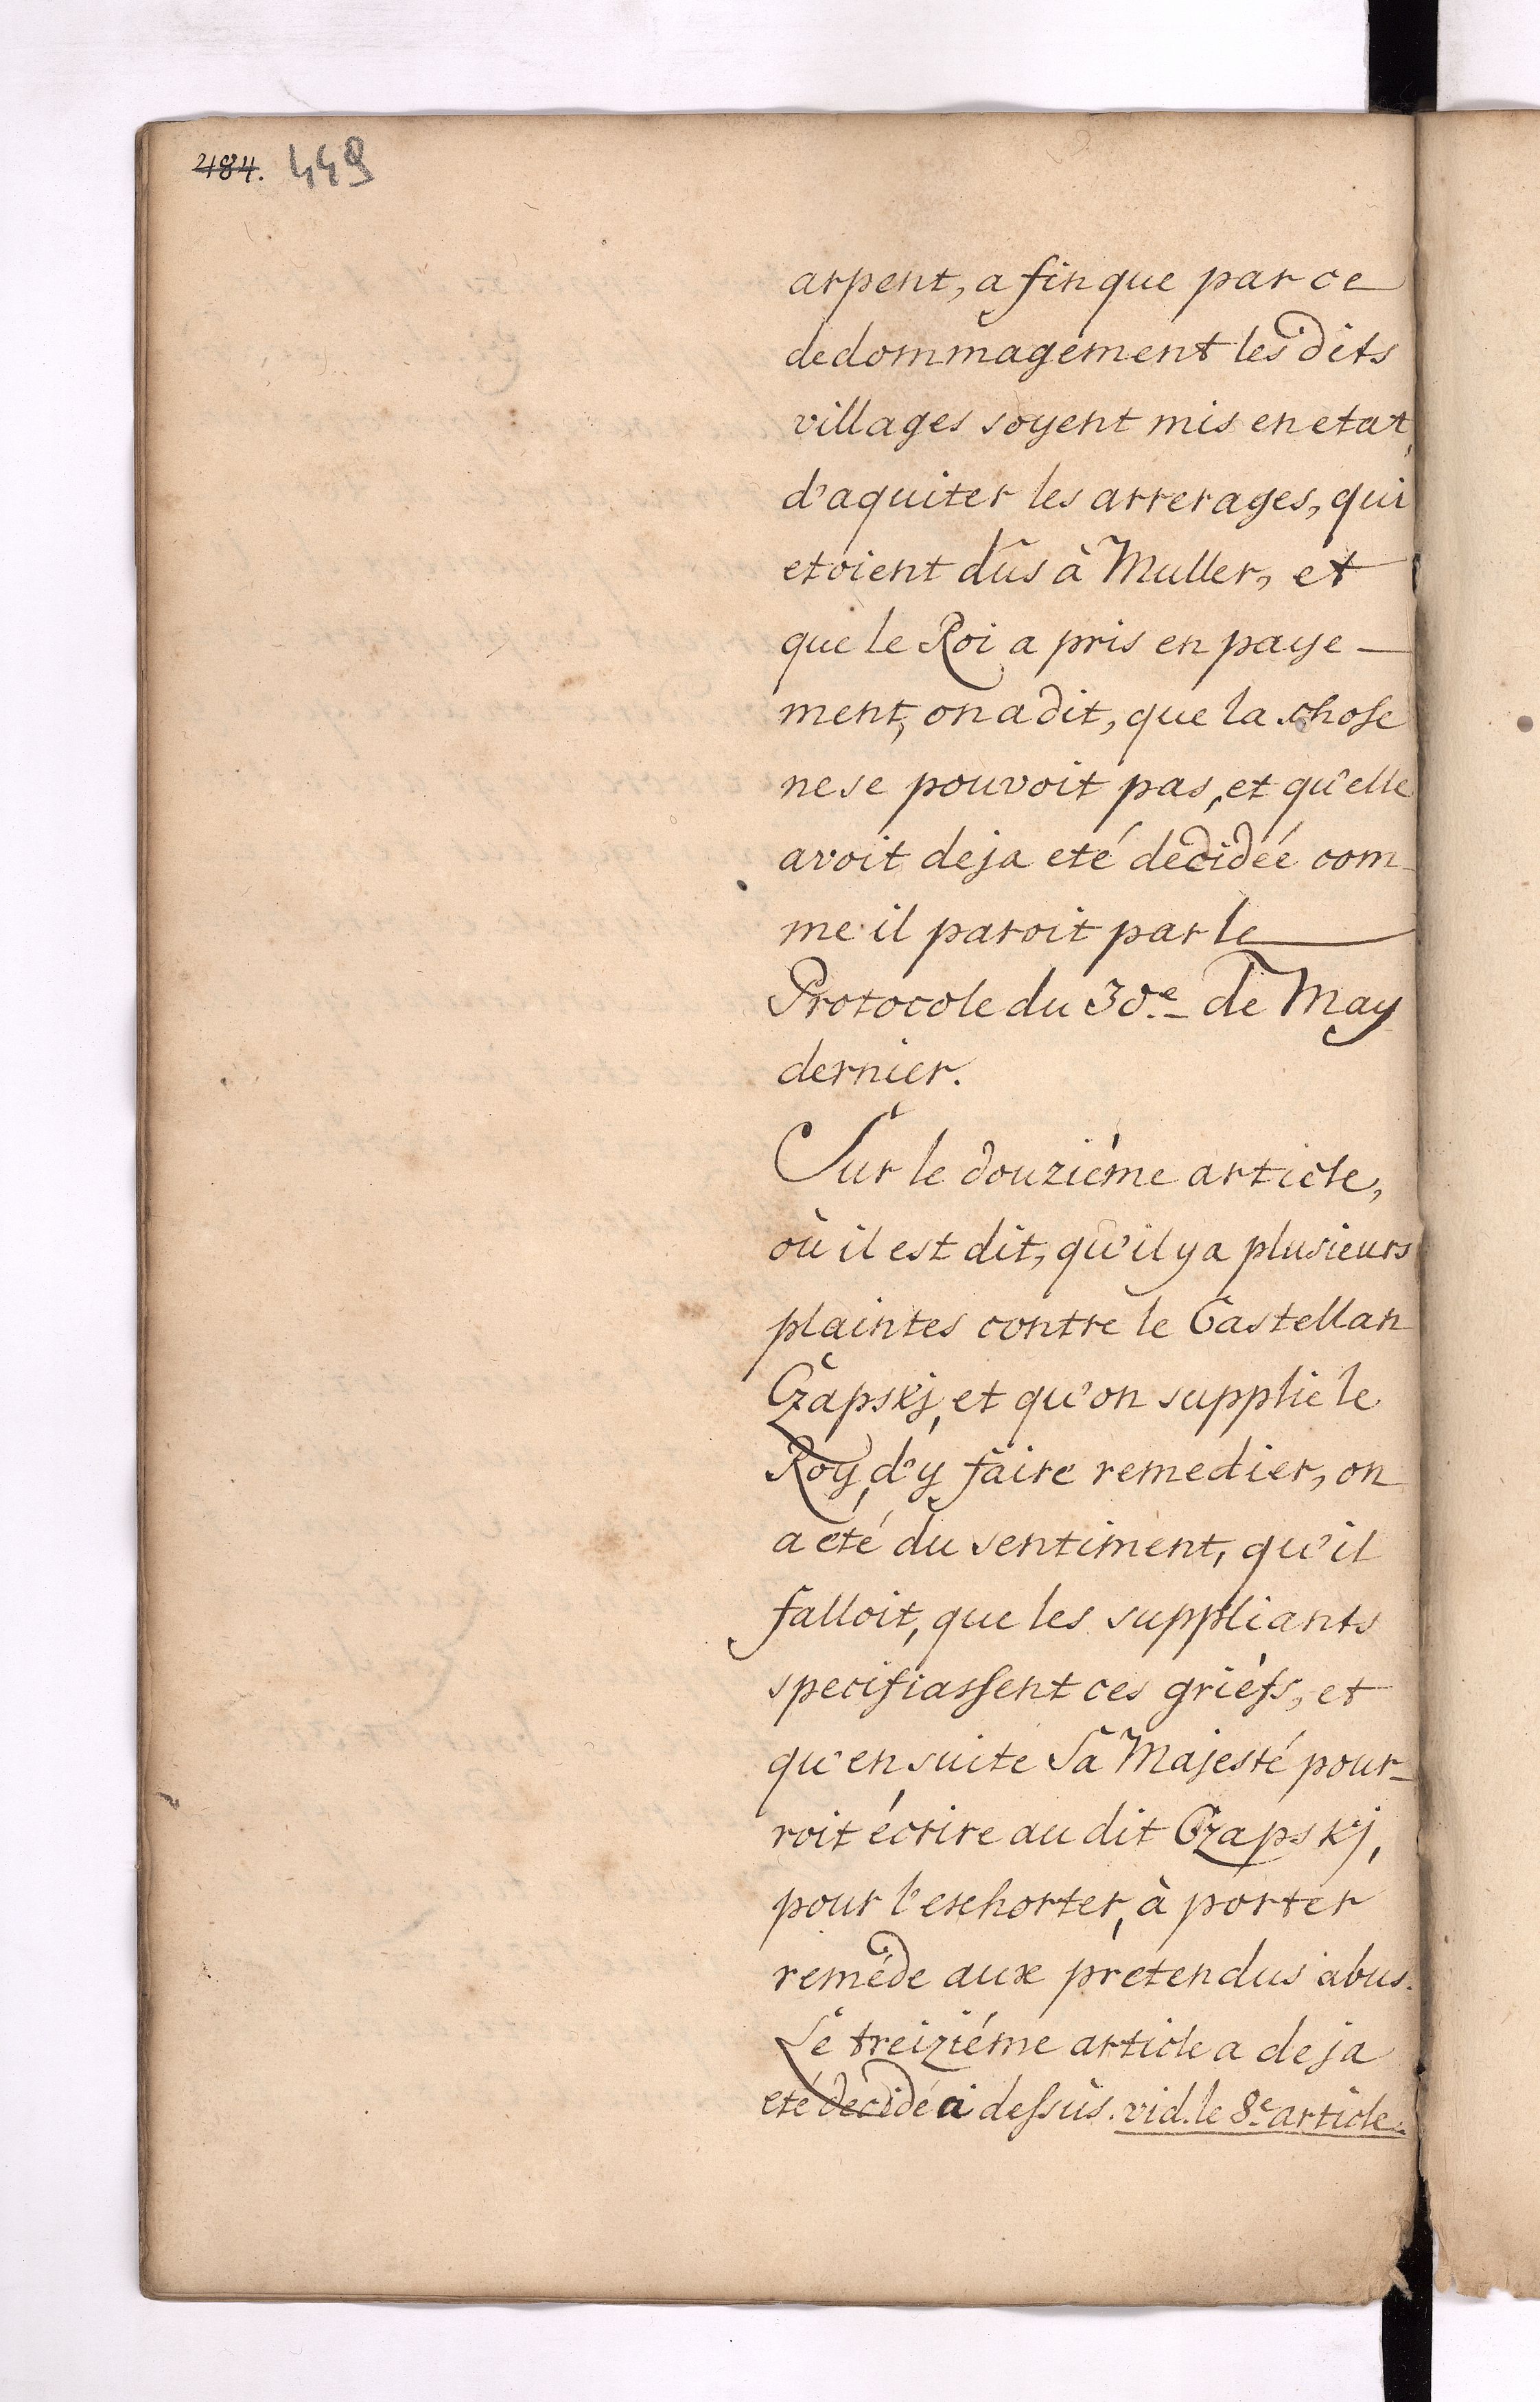 484. 449
arpent, a fin que par ce
dedommagement les dits
villages soyent mis en etat,
d'aquiter les arrerages, qui
etoient dûs à Muller, et
que le Roi a pris en paye-
ment, on a dit, que la chose
ne se pouvoit pas, et qu'elle
avoit deja eté decidée com-
me il paroit par le
Protocole du 30e de May
dernier.
Sur le douziéme article,
où il est dit, qu'il y a plusieurs
plaintes contre le Castellan
Czapskj, et qu'on supplie le
Roy, d'y faire remedier, on
a eté du sentiment, qu'il
falloit, que les suppliants
specifiassent ces griefs, et
qu'en suite Sa Majesté pour-
roit écrire au dit Czapskj,
pour l'exhorter, à porter
reméde aux pretendus abus.
Le treiziéme article a deja
eté decidé ci dessus. vid. le 8e article.